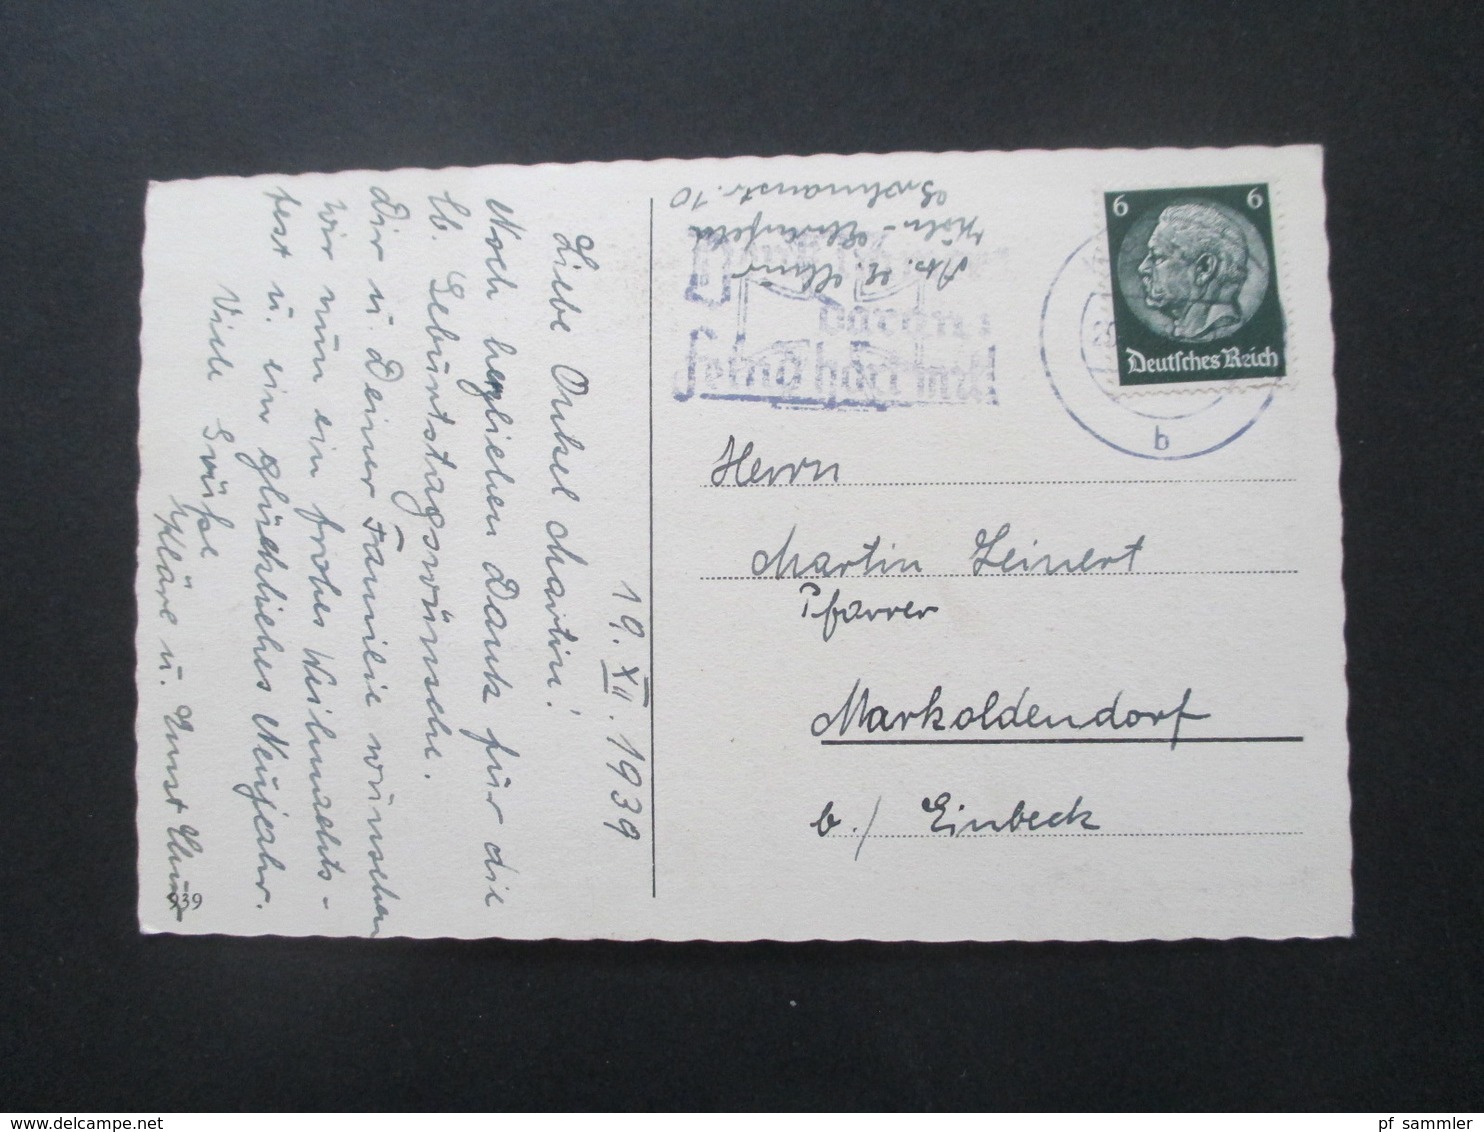 19. XII. 1939
Liebe Onkel Martin!
Noch herzlichen Dank für die
lb. Geburtstagswünsche.
Dir u. Deiner Familie wünschen
wir nun ein frohes Weihnachts-
fest u. ein glückliches Neujahr.
Viele Grüße
Kläre u. Ernst
939
Abs.
Köln-Ehrenfeld
daran:
Feind hört mit!
b
6 6
Deutsches Reich
Herrn
Martin Leinert
Pfarrer
Markoldendorf
b./ Einbeck
pf_sammler